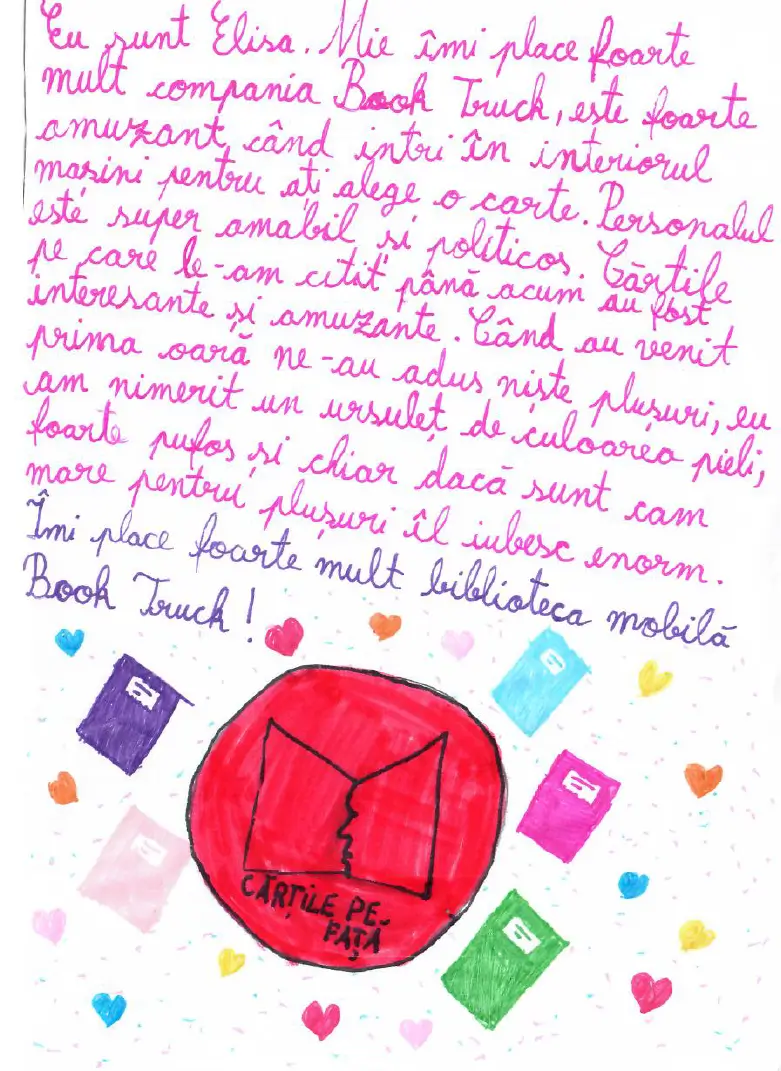 Eu sunt Elisa. Mie îmi place foarte
mult compania Book Truck, este foarte
amuzant când intri în interiorul
mașini pentru ați alege o carte. Personalul
este super amabil și politicos. Cărțile
pe care le-am citit până acum au fost
interesante și amuzante. Când au venit
prima oară ne-au adus niște plușuri, eu
am nimerit un ursuleț de culoarea pieli,
foarte pufos și chiar dacă sunt cam
mare pentru plușuri îl iubesc enorm.
Îmi place foarte mult biblioteca mobilă
Book Truck!
CĂRȚILE PE-
FAȚĂ